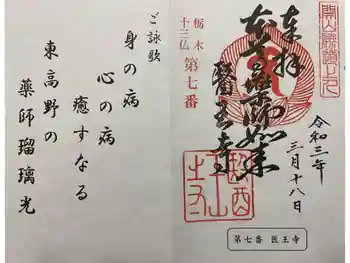 ご詠歌
身の病
心の病
癒すなる
東高野の
薬師瑠璃光
栃木
十三仏
第七番
奉拝
薬師如来
医王寺
令和三年
三月十八日
第七番 医王寺